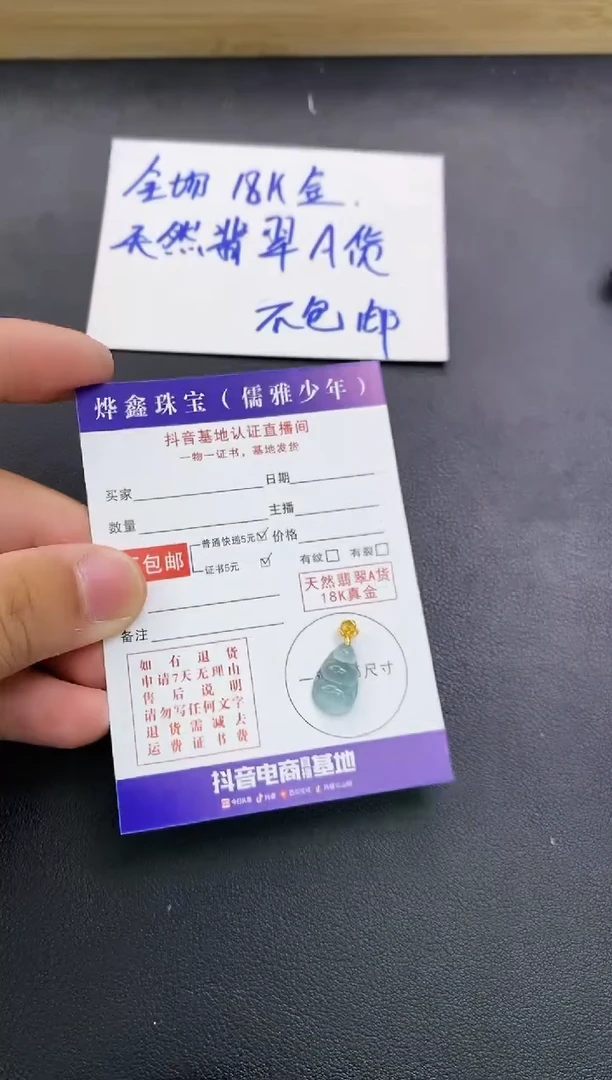 全场 18K金.
天然翡翠A货
不包邮
烨鑫珠宝(儒雅少年)
抖音基地认证直播间
一物一证书，基地发货
买家 日期
数量 主播
包邮 普通快递5元 价格
证书5元 有纹 有裂
天然翡翠A货
18K真金
备注
尺寸
如有退货
申请7天无理由
售后说明
请勿写任何文字
退货需减去
运费证书费
抖音电商直播基地
今日头条 抖音